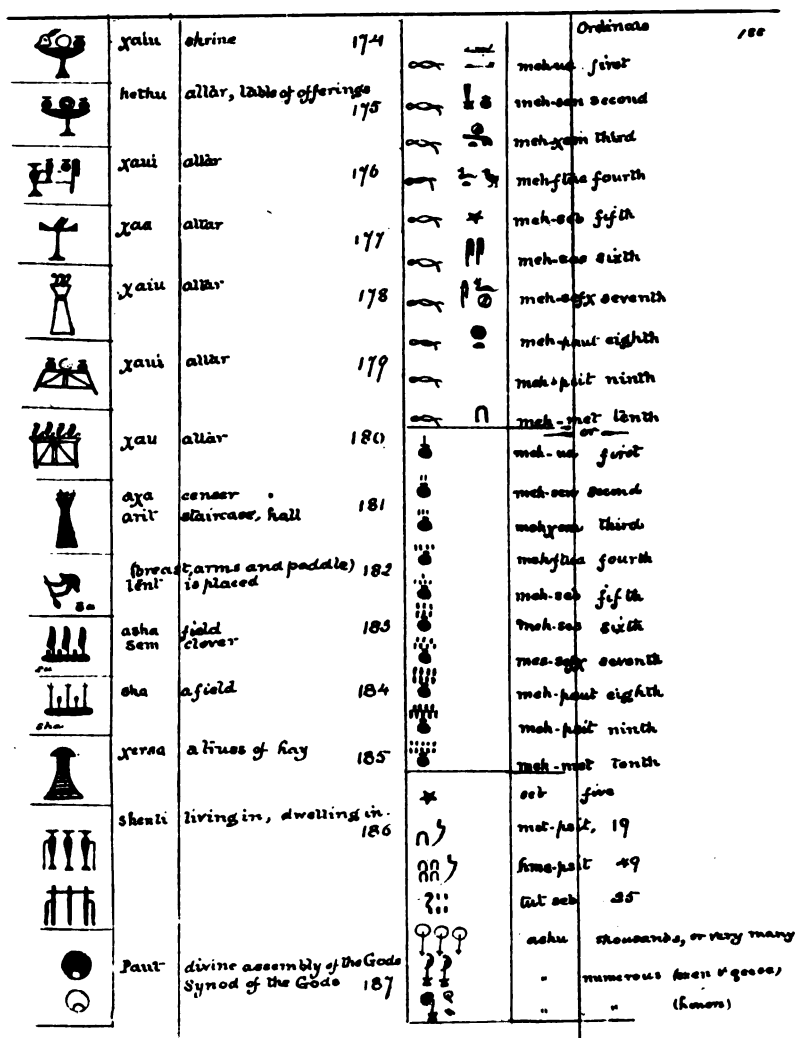 χalu shrine 174
hethu altar, table of offerings
175
χaui altar 176
χaa altar
177
χaiu altar 178
χaui altar
179
χau altar 180
aχa censer
arit staircase, hall 181
(breast, arms and paddle) 182
tent is placed
sa
asha field 183
sem clover
su
sha a field 184
sha
χersa a truss of hay 185
shenti living in, dwelling in.
186
Paut divine assembly of the Gods
Synod of the Gods 187
Ordinals 188
meh-ua first
meh-sen second
meh-χem third
meh-ftua fourth
meh-seb fifth
meh-sas sixth
meh-sefχ seventh
meh-paut eighth
meh-psit ninth
meh-met tenth
or
meh-ua first
meh-sen second
meh χem third
meh-ftua fourth
meh-seb fifth
meh-sas sixth
mes-sefχ seventh
meh-paut eighth
meh-psit ninth
meh-met tenth
seb five
met-psit, 19
hme-psit 49
tut seb 25
ashu thousands, or very many
" numerous
" " (honors)